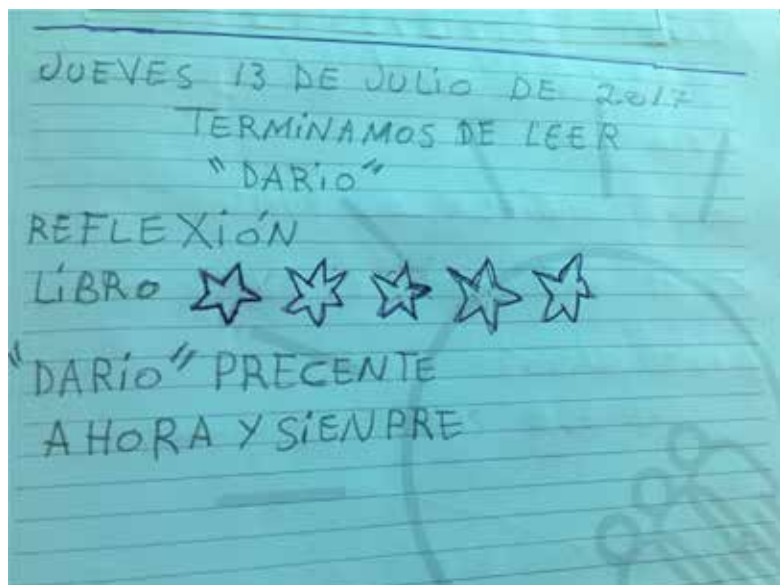 JUEVES 13 DE JULIO DE 2017
TERMINAMOS DE LEER
"DARIO"
REFLEXIÓN
LIBRO ☆ ☆ ☆ ☆ ☆
"DARIO" PRECENTE
AHORA Y SIENPRE